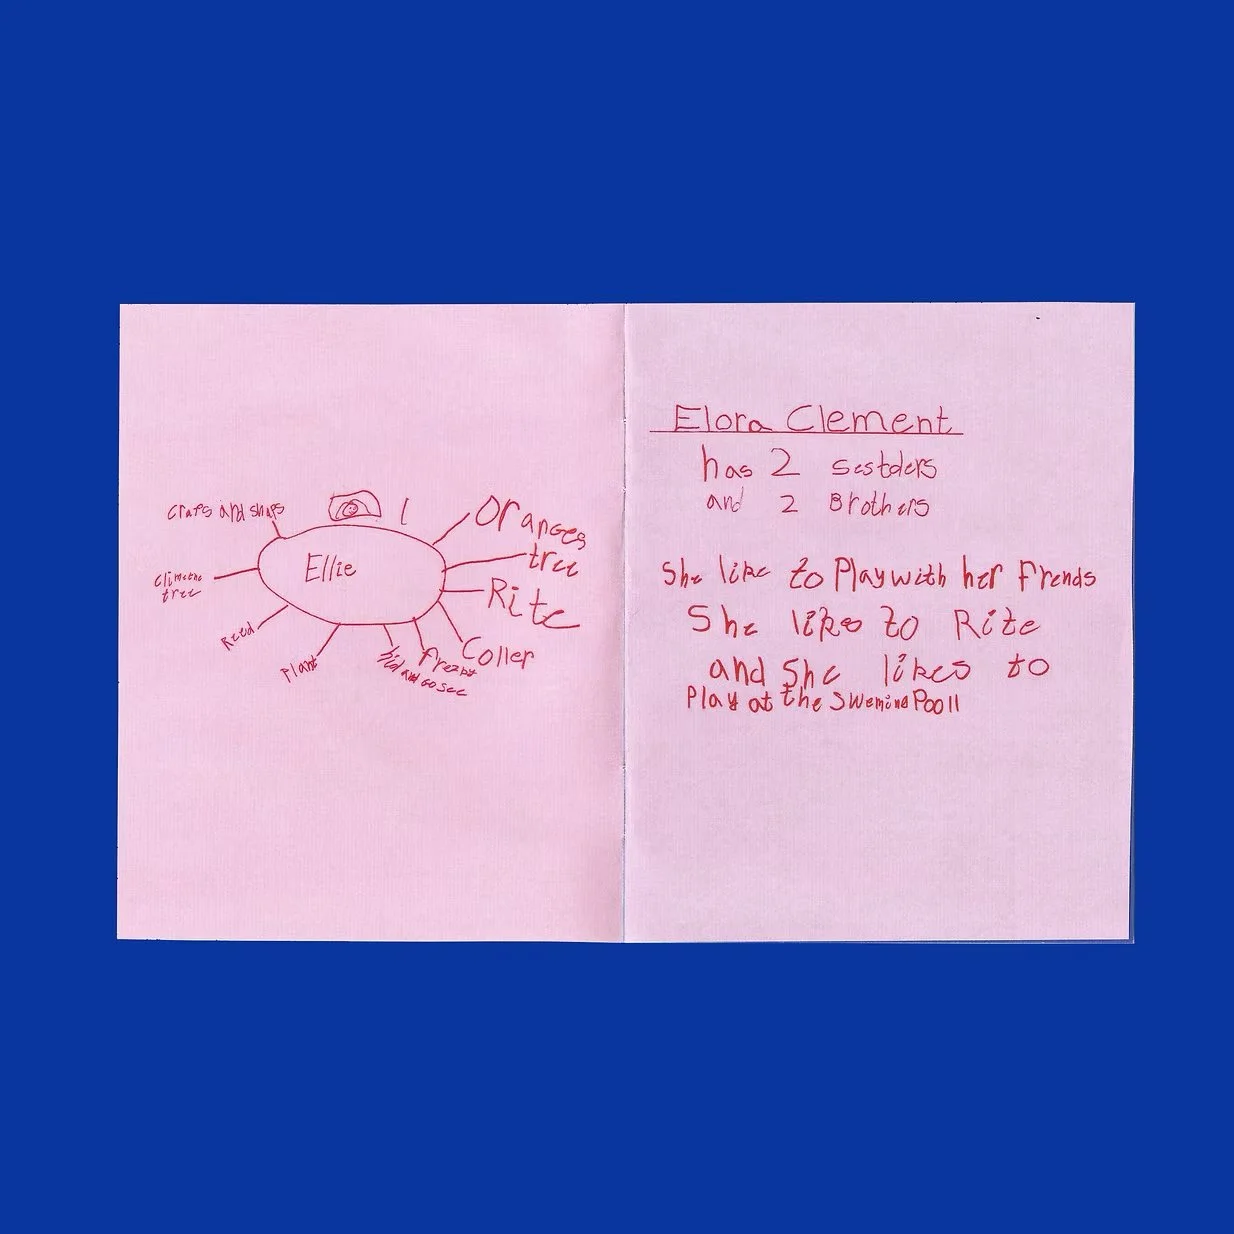 crafs and shaps
climethe
tree
Reed
Plant
hid and Go see
frezby
Coller
Rite
tree
Oranges
Ellie
Elora Clement
has 2 sestders
and 2 Brothers
She like to Play with her frends
She likes to Rite
and She likes to
Play at the SweminG Pooll